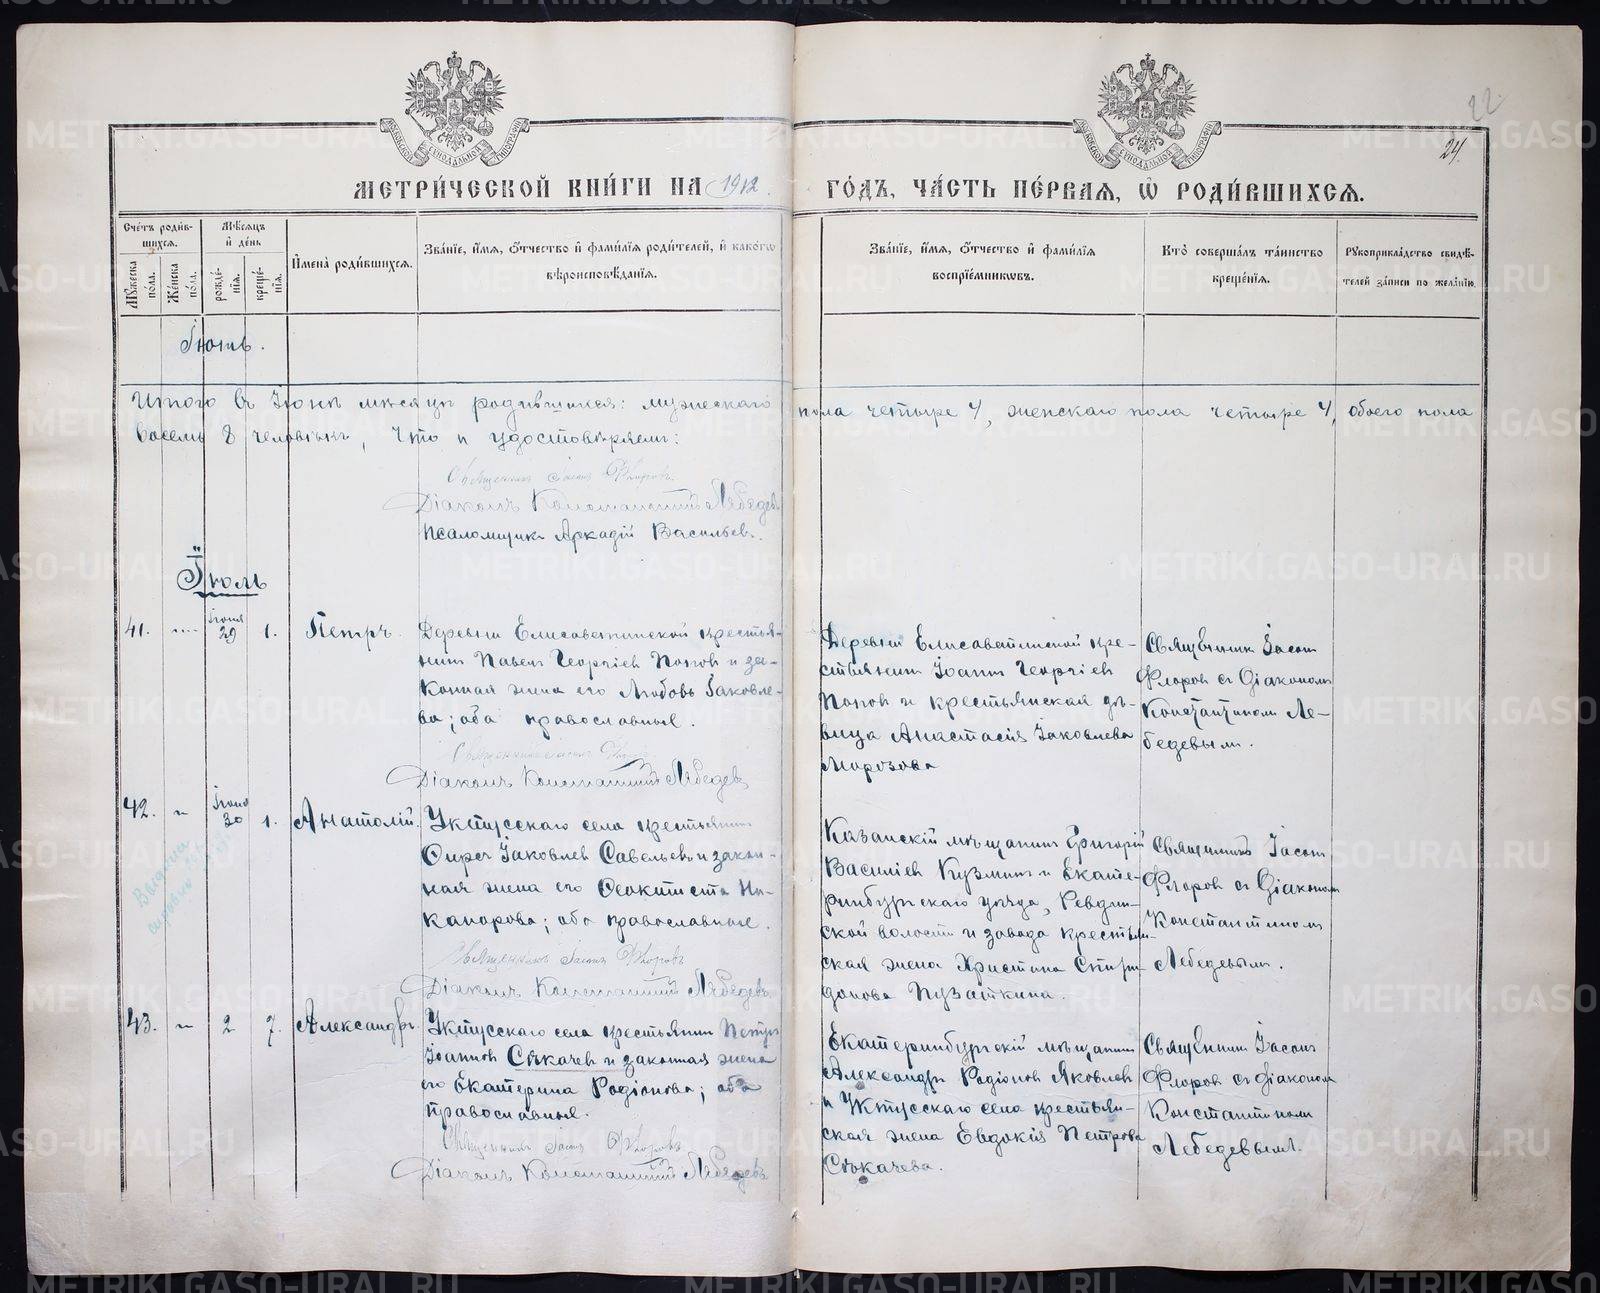 22
24.
МЕТРИ́ЧЕСКОЙ КНИ́ГИ НА 1912 ГО́ДЪ, ЧА́СТЬ ПЕ́РВАЯ, Ѡ҆ РОДИ́ВШИХСЯ.
Сче́тъ роди́вшихся.
Мꙋ́жеска по́ла.
Же́нска по́ла.
Мѣ́сяцъ и҆ де́нь
рожде́нїя.
креще́нїя.
И҆мена̀ роди́вшихся.
Зва́нїе, и҆́мя, ѻ҆́тчество и҆ фами́лїя роди́телей, и҆ како́гѡ
вѣроисповѣ́данїя.
Зва́нїе, и҆́мя, ѻ҆́тчество и҆ фами́лїя
воспрїе́мниковъ.
Кто̀ соверша́лъ та́инство
креще́нїя.
Рꙋкоприкла́дство свидѣ́телей за́писи по жела́нїю.
Іюнь.
Итого въ Іюнѣ мѣсяцѣ родившихся: мужескаго пола четыре 4, женскаго пола четыре 4, обоего пола
восемь 8 человѣкъ, что и удостовѣряемъ:
Священникъ Іасонъ Флоровъ.
Діаконъ Константинъ Лебедевъ
Псаломщикъ Аркадій Васильевъ.
Іюль
41.
Іюня
29
1.
Петръ.
Деревни Елисаветинской крестья-
нинъ Павелъ Георгіевъ Поповъ и за-
конная жена его Любовь Іаковле-
ва; оба православные.
Священникъ Іасонъ Флоровъ
Діаконъ Константинъ Лебедевъ
Деревни Елисаветинской кре-
стьянинъ Іоаннъ Георгіевъ
Поповъ и крестьянская дѣ-
вица Анастасія Іаковлева
Морозова
Священникъ Іасонъ
Флоровъ съ Діакономъ
Константиномъ Ле-
бедевымъ.
42.
Іюня
30
1.
Анатолій.
Уктусскаго села крестьянинъ
Іаковлевъ Савельевъ и закон-
ная жена его Ѳеоктиста Ни-
канорова; оба православные.
Священникъ Іасонъ Флоровъ
Діаконъ Константинъ Лебедевъ
Казанскій мѣщанинъ Григорій
Василіевъ Кузминъ и Екате-
ринбургскаго уѣзда, Ревдин-
ской волости и завода крестьян-
ская жена Христина Спири-
донова Пузаткина.
Священникъ Іасонъ
Флоровъ съ Діакономъ
Константиномъ
Лебедевымъ.
43.
2
7.
Александръ.
Уктусскаго села крестьянинъ Петръ
Іоанновъ Сѣкачевъ и законная жена
его Екатерина Родіонова; оба
православные.
Священникъ Іасонъ Флоровъ
Діаконъ Константинъ Лебедевъ
Екатеринбургскій мѣщанинъ
Александръ Родіоновъ Яковлевъ
и Уктусскаго села крестьян-
ская жена Евдокія Петрова
Сѣкачева.
Священникъ Іасонъ
Флоровъ съ Діакономъ
Константиномъ
Лебедевымъ.
METRIKI.GASO-URAL.RU